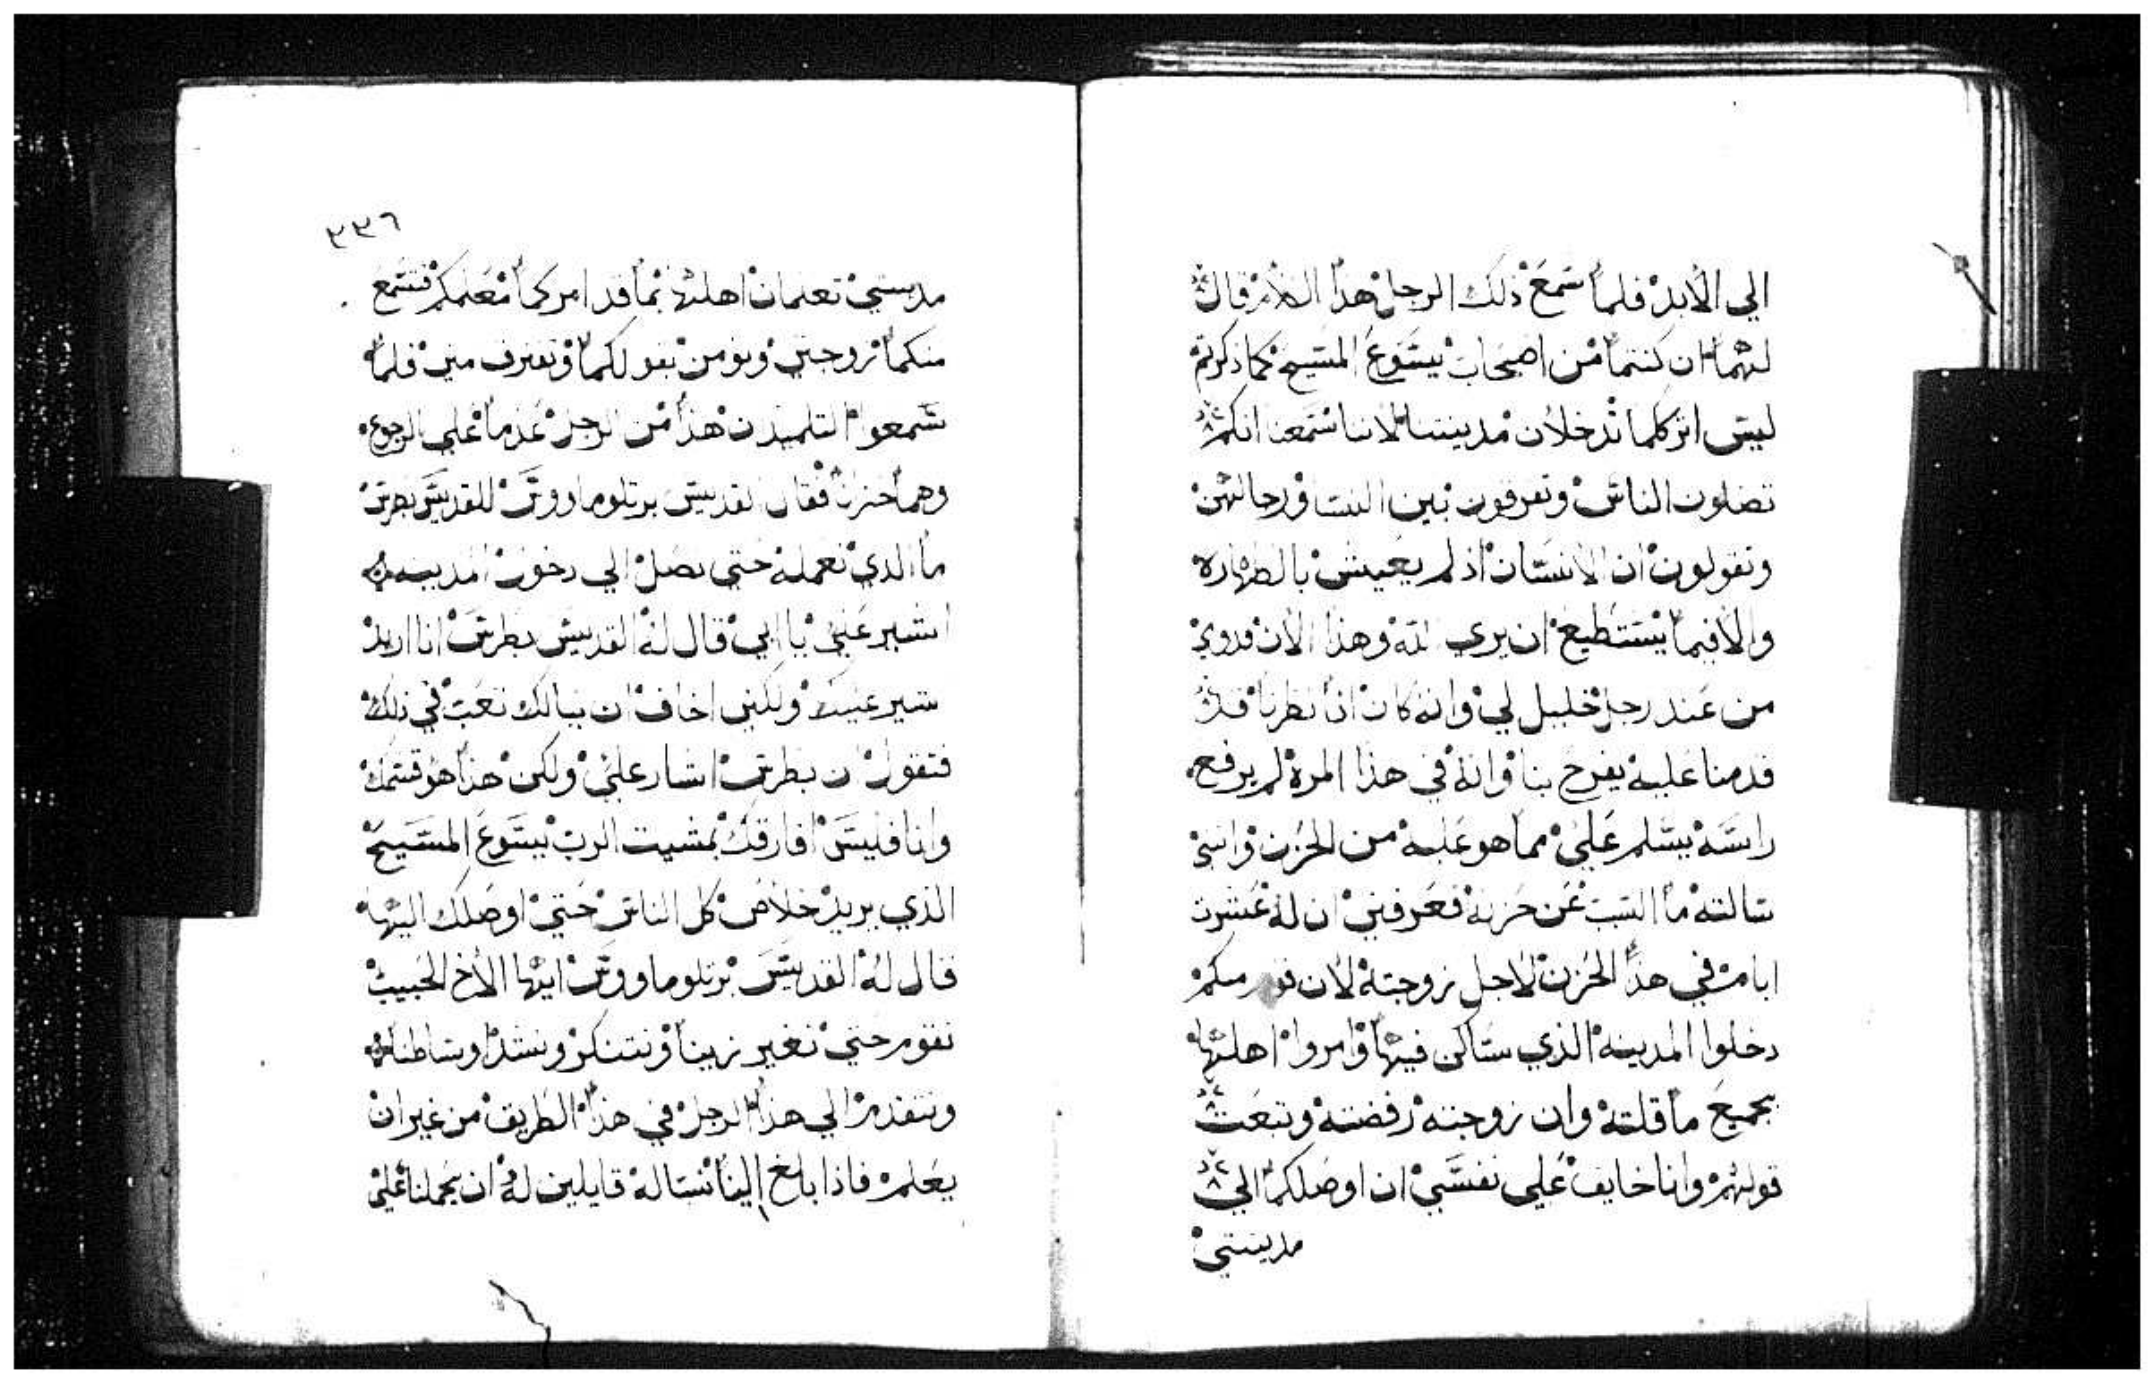 الي الابد فلما سمع ذلك الرجل هذا الكلام قال
لهما ان كنتما من اصحاب يسوع المسيح كما ذكرتم
ليس اترككما تدخلان مدينتنا لاننا سمعنا انكم
تضلون الناس وتفرقون بين النسا ورجالهن
وتقولون ان الانسان اذ لم يعيش بالطهاره
والا فما يستطيع ان يري الله وهذا الان قدوي
من عند رجل خليل لي وانه كان اذا نظرنا قد
قدمنا عليه يفرح بنا وانه في هذا المره لم يرفع
راسه يسلم علي مما هو عليه من الحزن وانني
سالته ما السبب عن حزنه فعرفني ان له عشرت
ايام في هذا الحزن لاجل زوجته لان قوم منكم
دخلوا المدينه الذي ساكن فيها وامروا اهلها
بجميع ما قلته وان زوجته رفضته وتبعت
قولهم وانا خايف علي نفسي ان اوصلكم الي
مدينتي
٣٣٦
مدينتي تعلمان اهلها بما قد امركما معلمكم فتسمع
منكما زوجتي وتومن بقولكما وتفترق مني فلما
سمعوا التلميذن هذا من الرجل عزما علي الرجوع
وهما حزنا فقال القديس برتلوماووس للقديس بطرس
ما الذي نعمله حتي نصل الي دخول المدينه
اشير علي يا ابي قال له القديس بطرس انا اريد
اشير عليك ولكني اخاف ان ينالك تعب في ذلك
فتقول ان بطرس اشار علي ولكن هذا هو قسمك
وانا فليس افارقك بمشيت الرب يسوع المسيح
الذي يريد خلاص كل الناس حتي اوصلك اليها
قال له القديس برتلوماووس ايها الاخ الحبيب
نقوم حتي نغير زينا ونتنكر ونشد اوساطنا
ونتقدم الي هذا الرجل في هذا الطريق من غير ان
يعلم فاذا بلغ الينا نساله قايلين له ان يحملنا علي